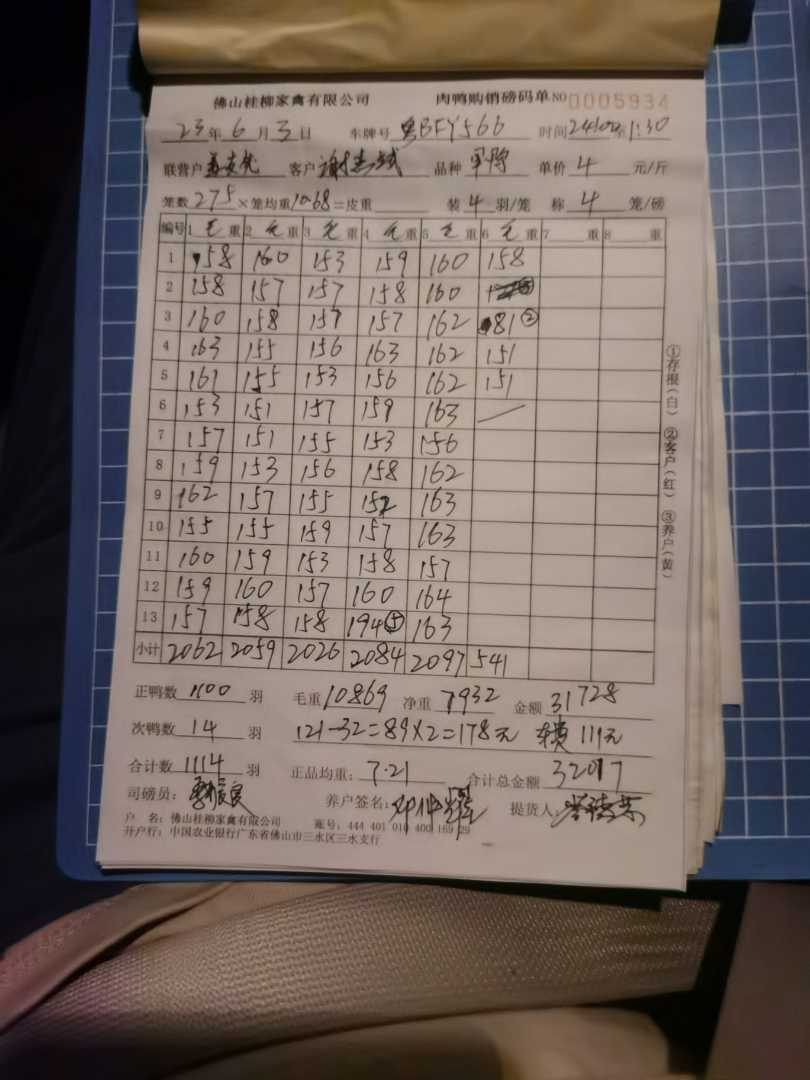 佛山桂柳家禽有限公司 肉鸭购销磅码单 NO 0005934
23年6月3日 车牌号 粤BFY566 时间24:00至1:30
联营户 客户 品种 单价 4 元/斤
笼数 275 ×笼均重10.68=皮重 装 4 羽/笼 称 4 笼/磅
编号 1 毛 重 2 毛 重 3 毛 重 4 毛 重 5 毛 重 6 毛 重 7 重 8 重
1 158 160 153 159 160 158
2 158 157 157 158 160
3 160 158 157 157 162 81②
4 163 155 156 163 162 151
5 161 155 153 156 162 151
6 153 151 157 159 163
7 157 151 155 153 156
8 159 153 156 158 162
9 162 157 155 152 163
10 155 155 159 157 163
11 160 159 153 158 157
12 159 160 157 160 164
13 157 158 158 194⑤ 163
小计 2062 2059 2026 2084 2097 541
正鸭数 1100 羽 毛重 10869 净重 7932 金额 31728
次鸭数 14 羽 121-32=89×2=178元 111元
合计数 1114 羽 正品均重: 7.21 合计总金额 32017
司磅员: 养户签名: 提货人:
户 名: 佛山桂柳家禽有限公司 账号: 444 401 010 400 169 29
开户行: 中国农业银行广东省佛山市三水区三水支行
①存根(白) ②客户(红) ③养户(黄)